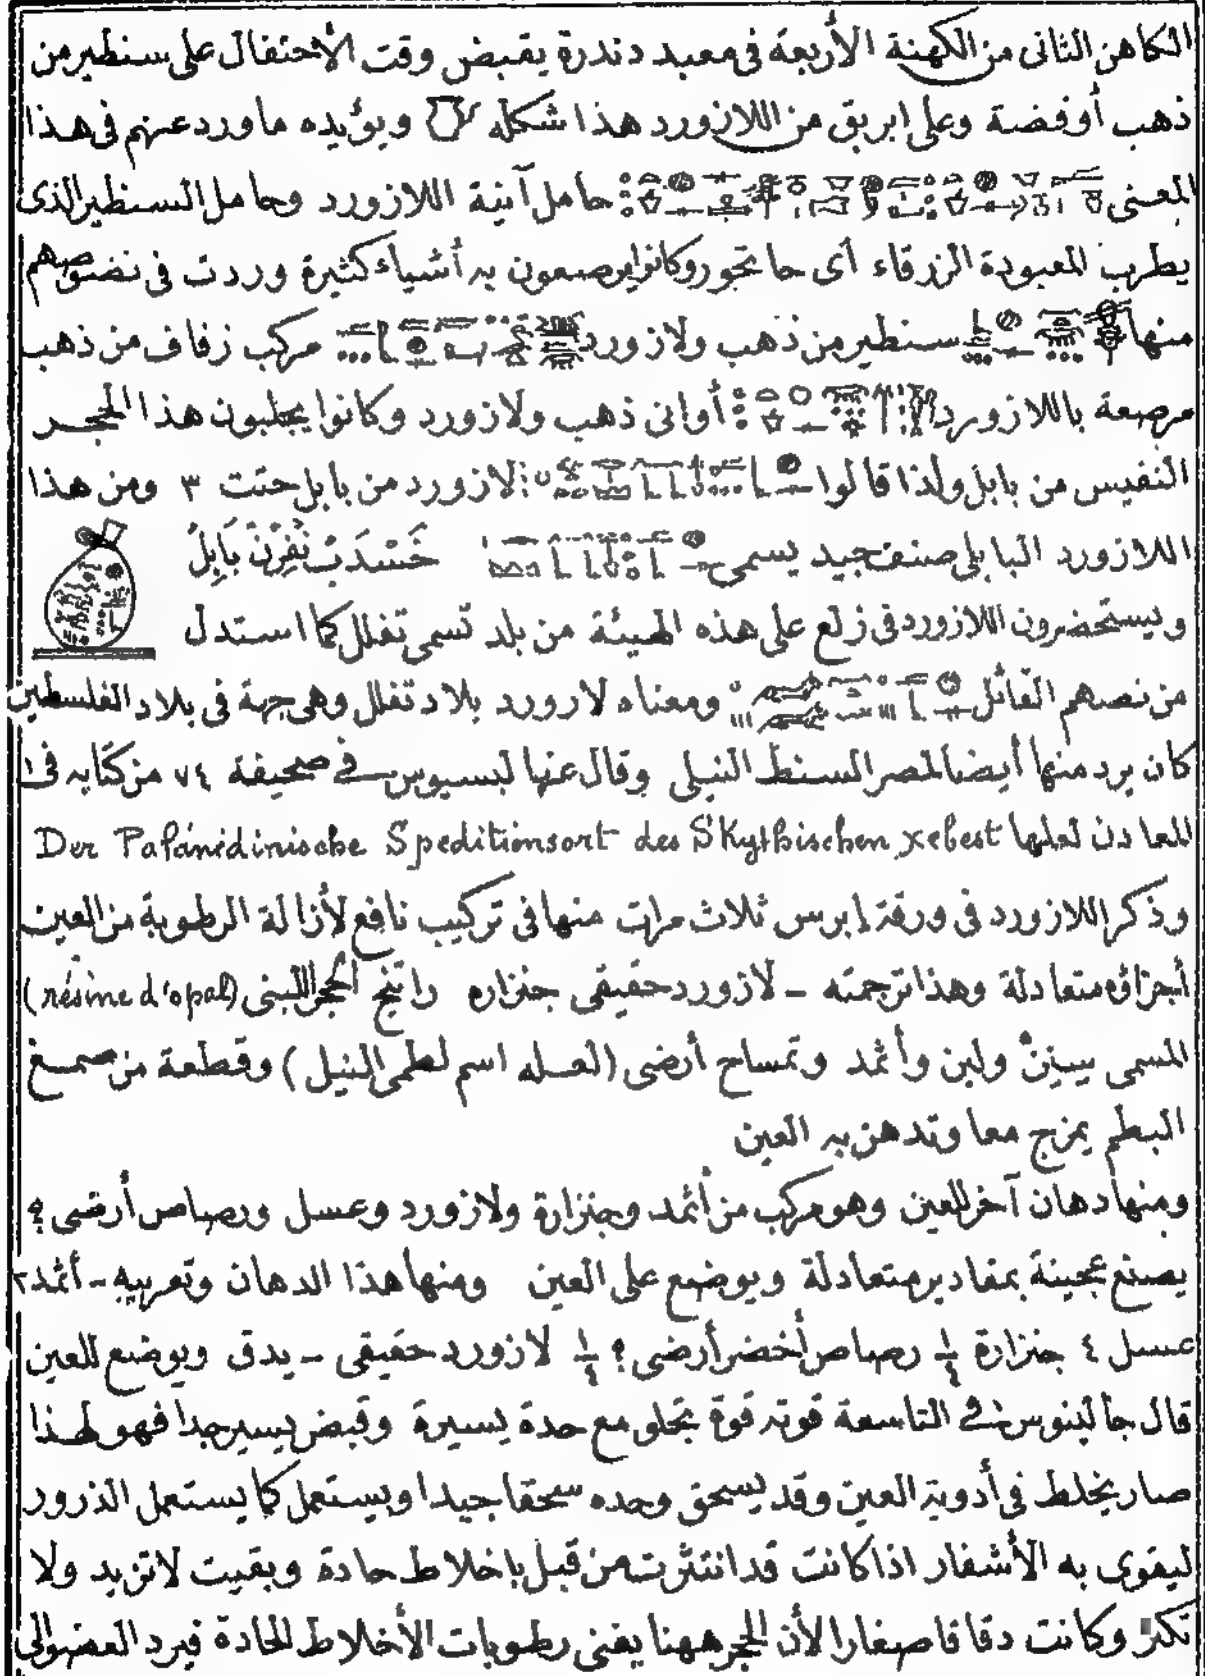 الكاهن الثانى من الكهنة الأربعة فى معبد دندرة يقبض وقت الأحتفال على سنطير من
ذهب أوفضة وعلى ابريق من اللازورد هذا شكله ويؤيده ماورد عنهم فى هذا
المعنى حامل آنية اللازورد وحامل السنطير الذى
يطرب المعبودة الزرقاء أى حاتحور وكانوا يصنعون به أشياء كثيرة وردت فى نصوصهم
منها سنطير من ذهب ولازورد مركب زفاف من ذهب
مرصعة باللازورد أوانى ذهب ولازورد وكانوا يجلبون هذا الحجر
النفيس من بابل ولذا قالوا لازورد من بابل حتت ٣ ومن هذا
اللازورد البابلى صنف جيد يسمى خَسْدَبْ نَفِرْنْ بَابِلْ
ويستحضرون اللازورد فى زلع على هذه الهيئة من بلد تسمى تفلل كما استدل
من نصهم القائل ومعناه لازورد بلاد تفلل وهى جهة فى بلاد الفلسطين
كان يرد منها أيضا لمصر السنط النيلى وقال عنها لبسيوس فى صحيفة ٧٤ من كتابه فى
المعادن لعلها Der Palänidinische Speditionsort des Skythischen xebest
وذكر اللازورد فى ورقة إبرس ثلاث مرات منها فى تركيب نافع لأزالة الرطوبة من العين
أجزاؤه متعادلة وهذا ترجمته - لازورد حقيقى جنزاره راتنج الحجر اللبنى (résine d'opal)
المسمى ولبن وأثمد وتمساح أرضى (لعله اسم لطمى النيل) وقطعة من صمغ
البطم يمزج معا وتدهن به العين
ومنها دهان آخر للعين وهو مركب من أثمد وجنزارة ولازورد وعسل ورصاص أرضى ؟
يصنع عجينة بمقادير متعادلة ويوضع على العين ومنها هذا الدهان وتعريبه - أثمد ٢
عسل ٤ جنزارة ١/٤ رصاص أخضر أرضى ؟ ١/٤ لازورد حقيقى - يدق ويوضع للعين
قال جالينوس فى التاسعة قوته قوة تجلو مع حدة يسيرة وقبض يسير جدا فهو لهذا
صار يخلط فى أدوية العين وقد يسحق وحده سحقا جيدا ويستعمل كما يستعمل الذرور
ليقوى به الأشفار اذا كانت قد انتثرت من قبل باخلاط حادة وبقيت لاتزيد ولا
تكثر وكانت دقاقا صغارا لأن الحجر ههنا يفنى رطوبات الأخلاط الحادة فيرد العضو الى